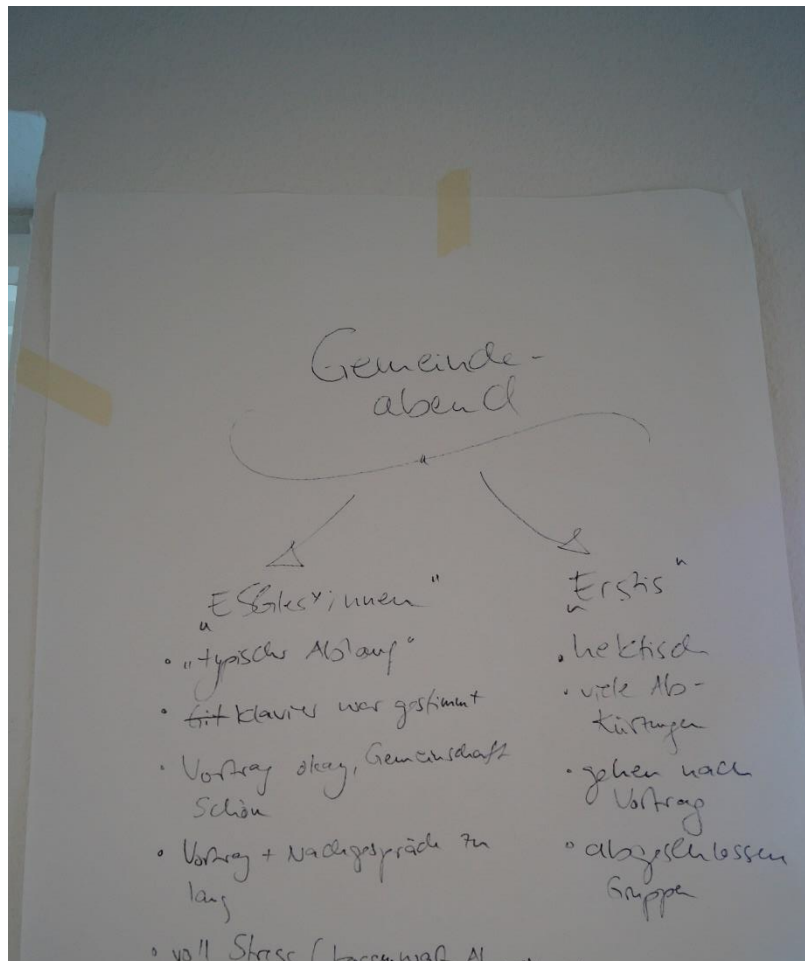 Gemeinde-
abend
„ESGler*innen"
• „typischer Ablauf"
• Git Klavier war gestimmt
• Vortrag okay, Gemeinschaft
schön
• Vortrag + Nachgespräch zu
lang
• voll Stress
„Erstis"
• hektisch
• viele Ab-
kürzungen
• gehen nach
Vortrag
• abgeschlossen
Gruppen